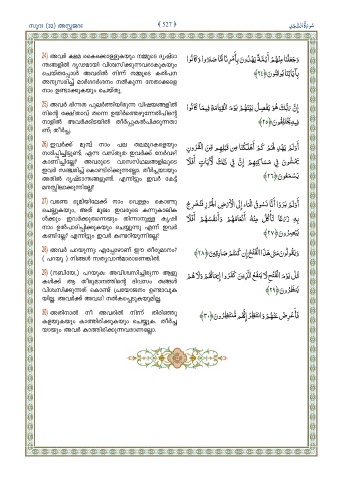 സൂറ (32) അസ്സജദഃ ﴾ 527 ﴿ سُورَةُ السَّجْدَةِ
24) അവർ ക്ഷമ കൈക്കൊള്ളുകയും നമ്മുടെ ദൃഷ്ടാ
ന്തങ്ങളിൽ ദൃഢമായി വിശ്വസിക്കുന്നവരാകുകയും
ചെയ്തപ്പോൾ അവരിൽ നിന്ന് നമ്മുടെ കൽപന
അനുസരിച്ച് മാർഗദർശനം നൽകുന്ന നേതാക്കളെ
നാം ഉണ്ടാക്കുകയും ചെയ്തു.
وَجَعَلْنَا مِنْهُمْ أَئِمَّةً يَهْدُونَ بِأَمْرِنَا لَمَّا صَبَرُوا وَكَانُوا
بِآيَاتِنَا يُوقِنُونَ ﴿٢٤﴾
25) അവർ ഭിന്നത പുലർത്തിയിരുന്ന വിഷയങ്ങളിൽ
നിന്റെ രക്ഷിതാവ് തന്നെ ഉയിർത്തെഴുന്നേൽപിന്റെ
നാളിൽ അവർക്കിടയിൽ തീർപ്പുകൽപിക്കുന്നതാ
ണ്; തീർച്ച.
إِنَّ رَبَّكَ هُوَ يَفْصِلُ بَيْنَهُمْ يَوْمَ الْقِيَامَةِ فِيمَا كَانُوا
فِيهِ يَخْتَلِفُونَ ﴿٢٥﴾
26) ഇവർക്ക് മുമ്പ് നാം പല തലമുറകളെയും
നശിപ്പിച്ചിട്ടുണ്ട്. എന്ന വസ്തുത ഇവർക്ക് നേർവഴി
കാണിച്ചില്ലേ? അവരുടെ വാസസ്ഥലങ്ങളിലൂടെ
ഇവർ സഞ്ചരിച്ച് കൊണ്ടിരിക്കുന്നല്ലോ. തീർച്ചയായും
അതിൽ ദൃഷ്ടാന്തങ്ങളുണ്ട്. എന്നിട്ടും ഇവർ കേട്ട്
മനസ്സിലാക്കുന്നില്ലേ?
أَوَلَمْ يَهْدِ لَهُمْ كَمْ أَهْلَكْنَا مِنْ قَبْلِهِمْ مِنَ الْقُرُونِ
يَمْشُونَ فِي مَسَاكِنِهِمْ إِنَّ فِي ذَٰلِكَ لَآيَاتٍ أَفَلَا
يَسْمَعُونَ ﴿٢٦﴾
27) വരണ്ട ഭൂമിയിലേക്ക് നാം വെള്ളം കൊണ്ടു
ചെല്ലുകയും, അത് മൂലം ഇവരുടെ കന്നുകാലിക
ൾക്കും ഇവർക്കുതന്നെയും തിന്നാനുള്ള കൃഷി
നാം ഉൽപാദിപ്പിക്കുകയും ചെയ്യുന്നു എന്ന് ഇവർ
കണ്ടില്ലേ? എന്നിട്ടും ഇവർ കണ്ടറിയുന്നില്ലേ?
أَوَلَمْ يَرَوْا أَنَّا نَسُوقُ الْمَاءَ إِلَى الْأَرْضِ الْجُرُزِ فَنُخْرِجُ
بِهِ زَرْعًا تَأْكُلُ مِنْهُ أَنْعَامُهُمْ وَأَنْفُسُهُمْ أَفَلَا
يُبْصِرُونَ ﴿٢٧﴾
28) അവർ പറയുന്നു: എപ്പോഴാണ് ഈ തീരുമാനം?
( പറയൂ ) നിങ്ങൾ സത്യവാൻമാരാണെങ്കിൽ.
وَيَقُولُونَ مَتَىٰ هَٰذَا الْفَتْحُ إِنْ كُنْتُمْ صَادِقِينَ ﴿٢٨﴾
29) (നബിയേ,) പറയുക: അവിശ്വസിച്ചിരുന്ന ആളു
കൾക്ക് ആ തീരുമാനത്തിന്റെ ദിവസം തങ്ങൾ
വിശ്വസിക്കുന്നത് കൊണ്ട് പ്രയോജനം ഉണ്ടാവുക
യില്ല. അവർക്ക് അവധി നൽകപ്പെടുകയുമില്ല.
قُلْ يَوْمَ الْفَتْحِ لَا يَنْفَعُ الَّذِينَ كَفَرُوا إِيمَانُهُمْ وَلَا هُمْ
يُنْظَرُونَ ﴿٢٩﴾
30) അതിനാൽ നീ അവരിൽ നിന്ന് തിരിഞ്ഞു
കളയുകയും കാത്തിരിക്കുകയും ചെയ്യുക. തീർച്ച
യായും അവർ കാത്തിരിക്കുന്നവരാണല്ലോ.
فَأَعْرِضْ عَنْهُمْ وَانْتَظِرْ إِنَّهُمْ مُنْتَظِرُونَ ﴿٣٠﴾